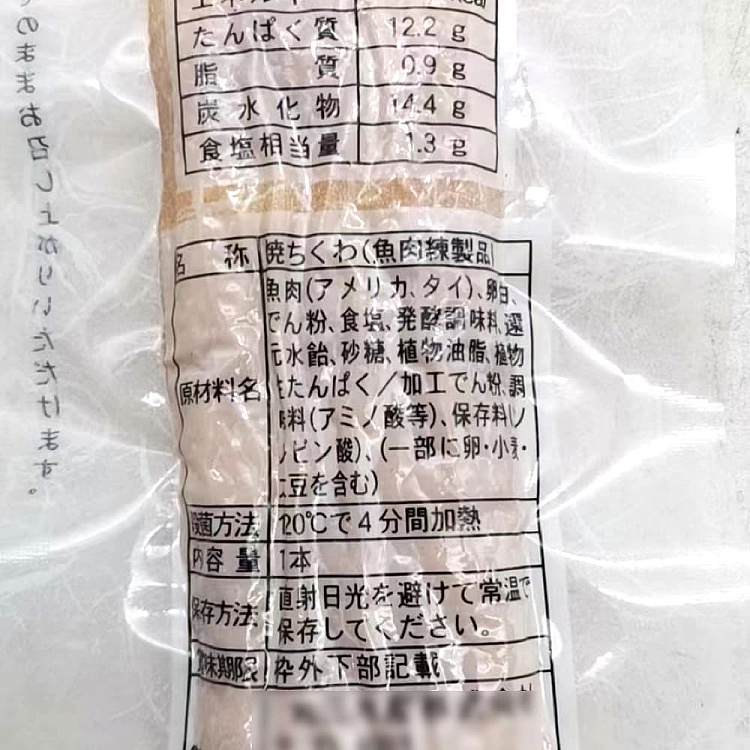 たんぱく質 12.2 g
脂質 0.9 g
炭水化物 14.4 g
食塩相当量 1.3 g
名称 焼ちくわ(魚肉練製品)
原材料名
魚肉(アメリカ、タイ)、卵白、
でん粉、食塩、発酵調味料、還
元水飴、砂糖、植物油脂、植物
性たんぱく／加工でん粉、調
味料(アミノ酸等)、保存料(ソ
ルビン酸)、(一部に卵・小麦・
大豆を含む)
殺菌方法 120℃で4分間加熱
内容量 1本
保存方法 直射日光を避けて常温で
保存してください。
賞味期限 枠外下部記載
のままお召し上がりいただけます。